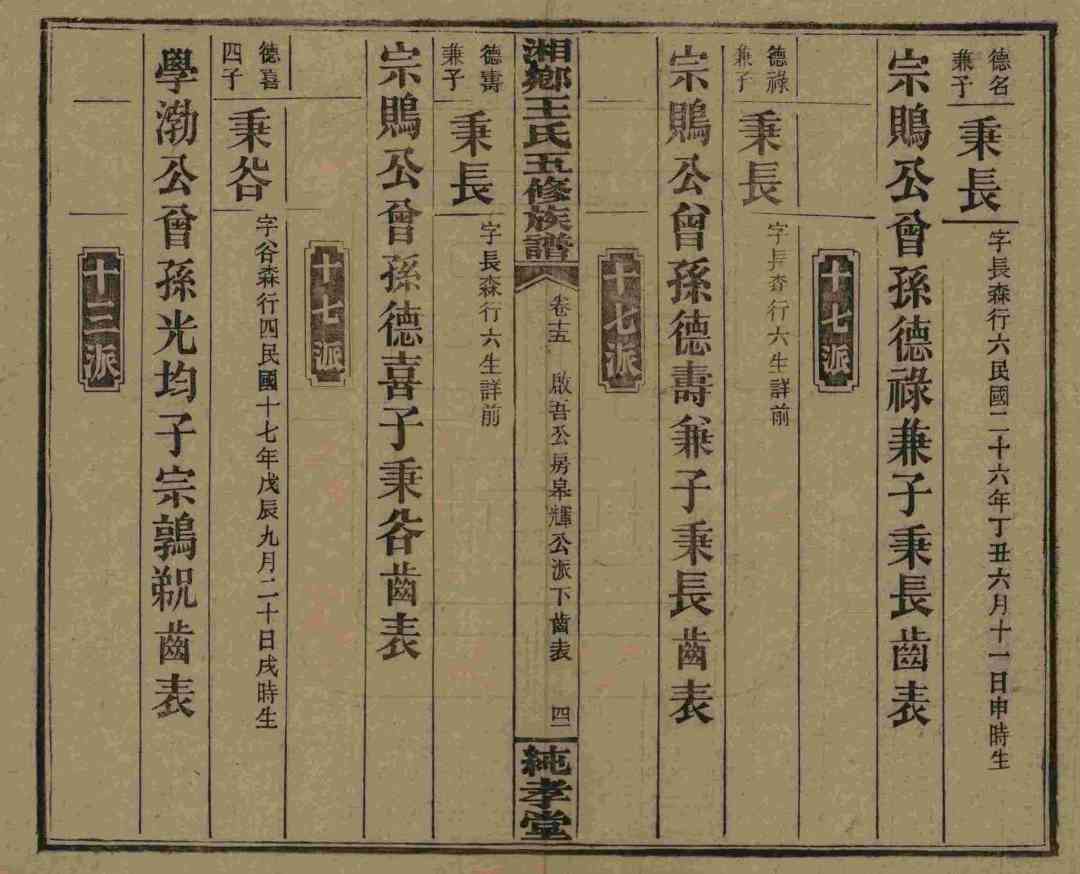 德名
兼子
秉長
字長森行六民國二十六年丁丑六月十一日申時生
宗鵰公曾孫德祿兼子秉長齒表
十七派
德祿
兼子
秉長
字長森行六生詳前
宗鵰公曾孫德壽兼子秉長齒表
十七派
湘鄉王氏五修族譜
卷十五
啟吾公房皋輝公派下齒表
四
純孝堂
德壽
兼子
秉長
字長森行六生詳前
宗鵰公曾孫德喜子秉谷齒表
十七派
德喜
四子
秉谷
字谷森行四民國十七年戊辰九月二十日戌時生
學渤公曾孫光均子宗鶉鶃齒表
十三派